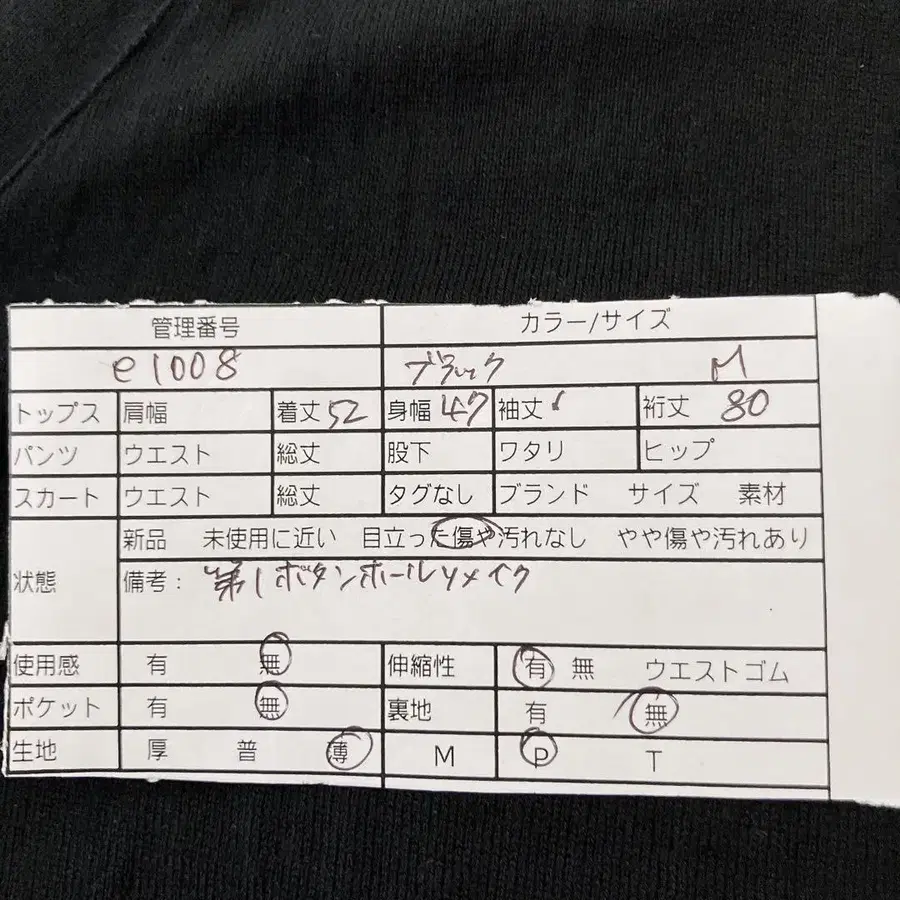 管理番号 カラー/サイズ
e1008 ブラック M
トップス 肩幅 着丈 52 身幅 47 袖丈 裄丈 80
パンツ ウエスト 総丈 股下 ワタリ ヒップ
スカート ウエスト 総丈 タグなし ブランド サイズ 素材
状態 新品 未使用に近い 目立った傷や汚れなし やや傷や汚れあり
備考: 第1ボタンホールリメイク
使用感 有 無 伸縮性 有 無 ウエストゴム
ポケット 有 無 裏地 有 無
生地 厚 普 薄 M P T